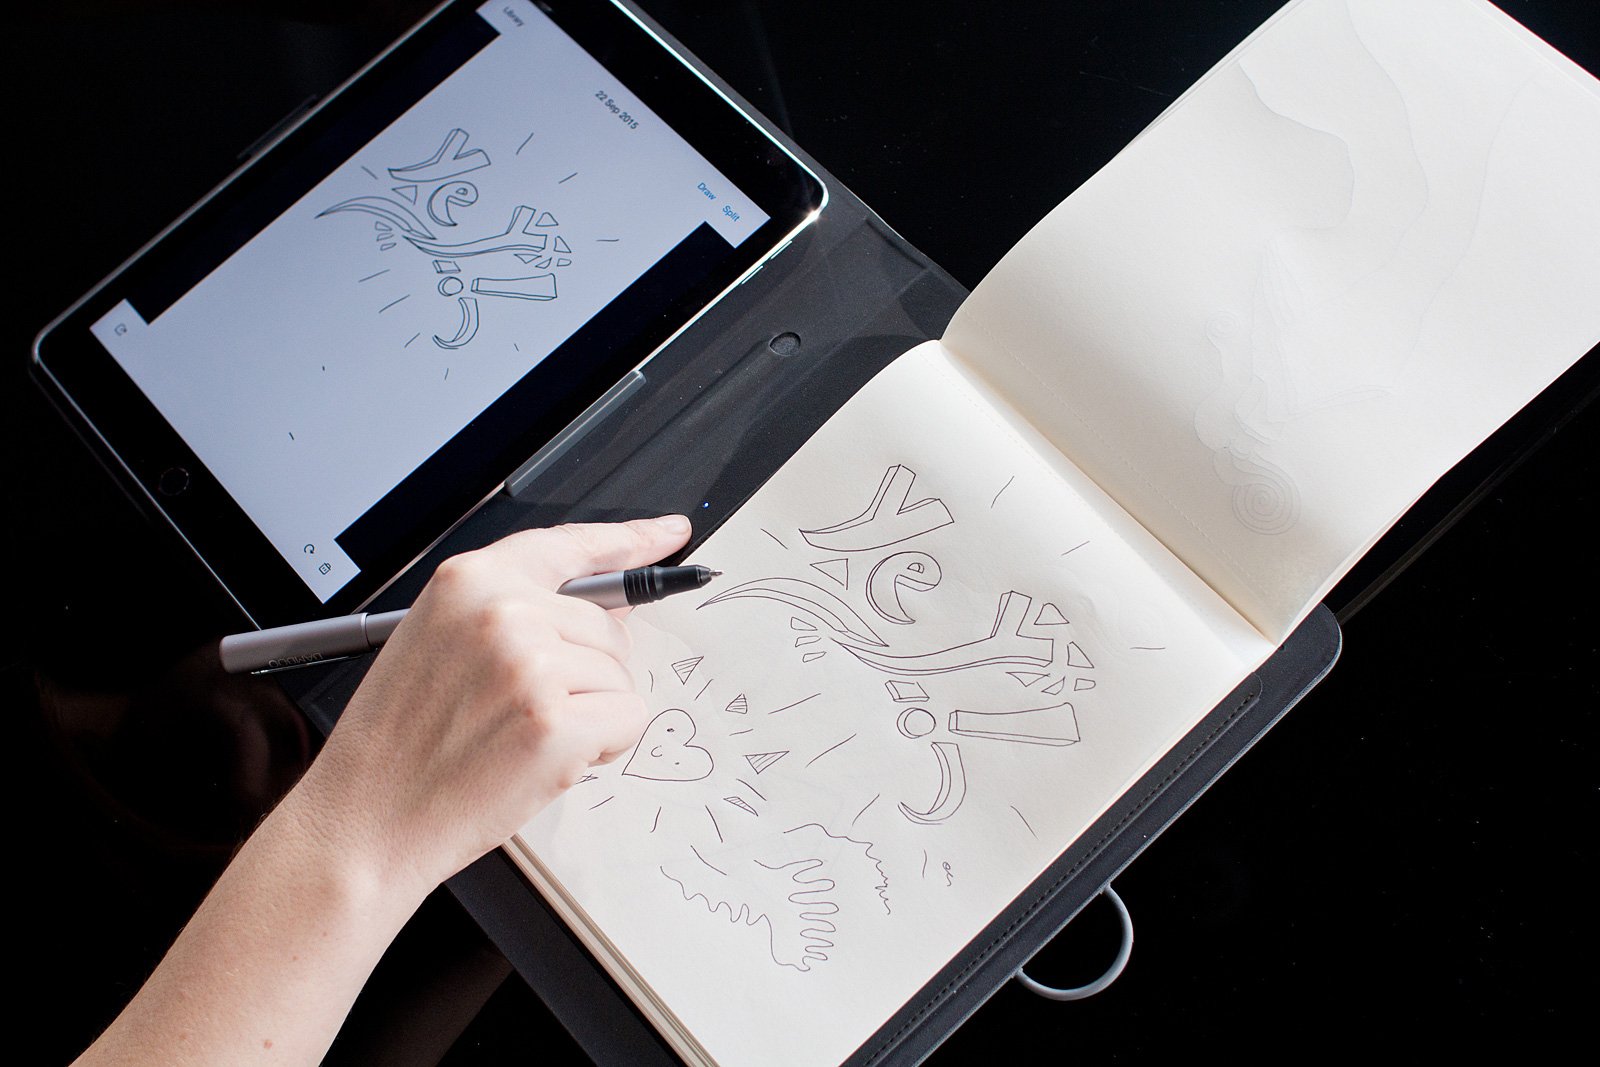 Library
22 Sep 2015
Draw Split
Yey!
BAMBOO
Yey!